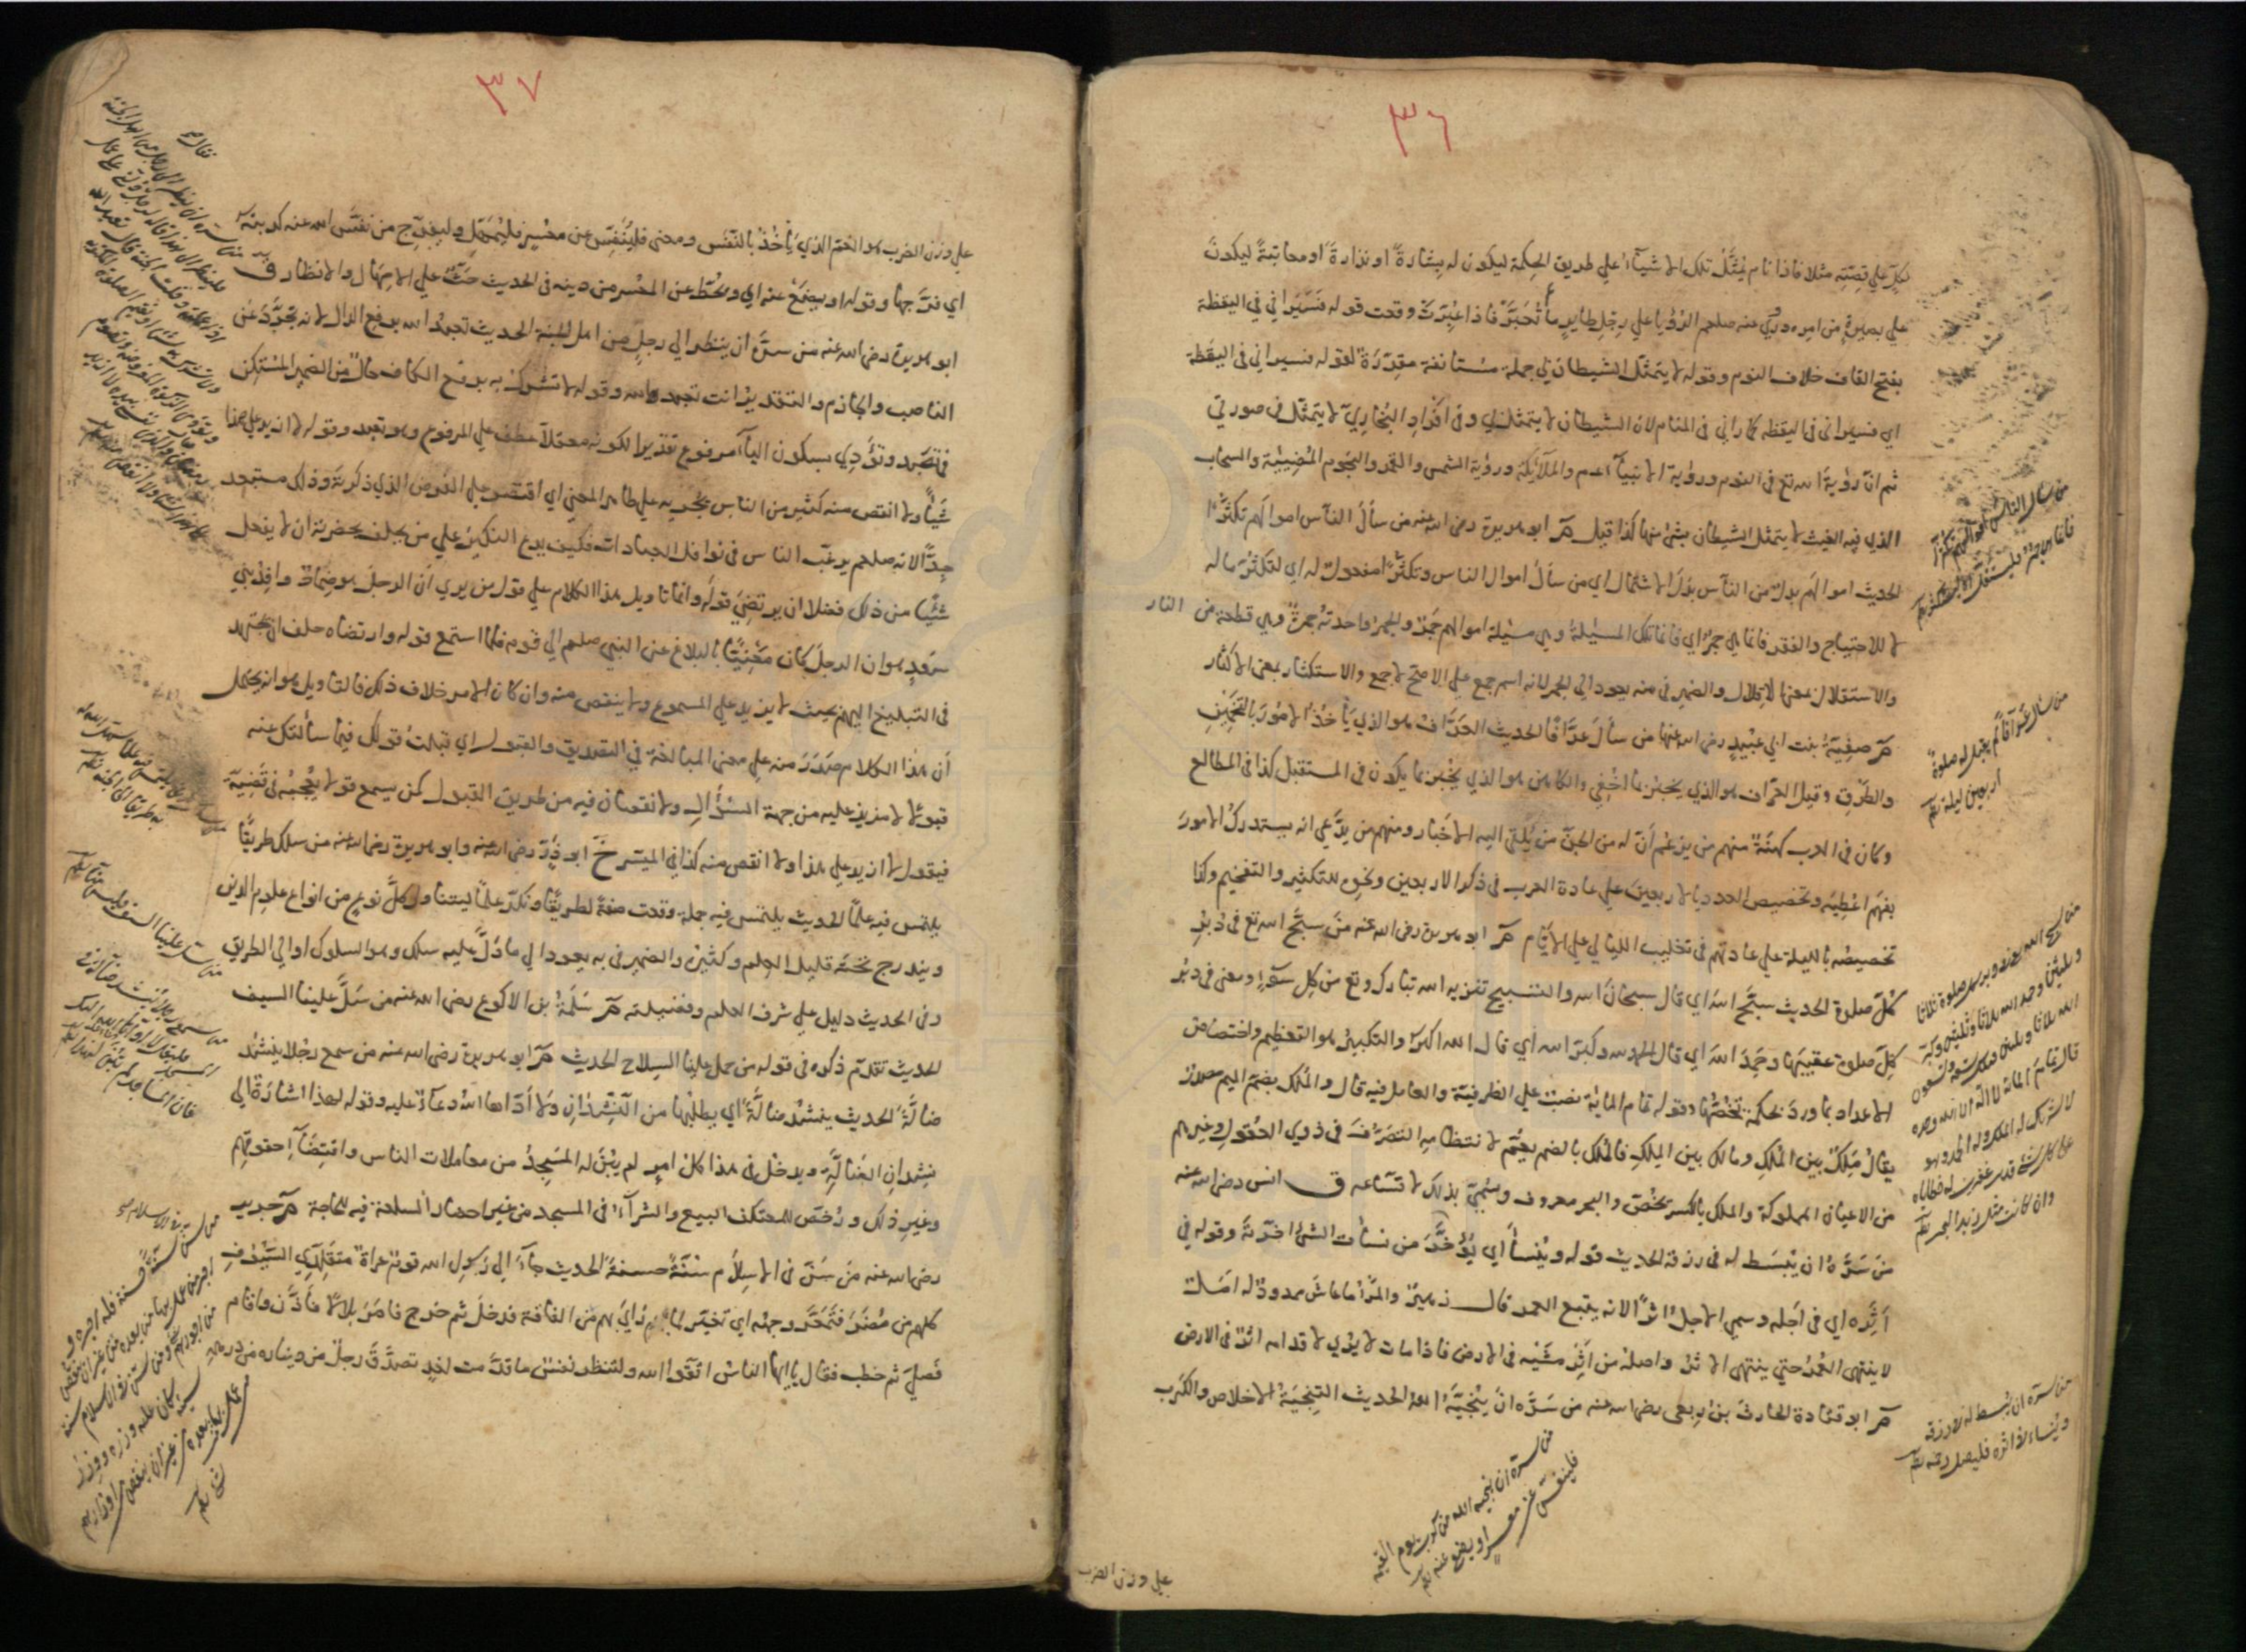 ٣٦
لكل علي قصته مثلا فاذا نام يمثل تلك الاشيآء علي طريق الحكمة ليكون له بشارة او نذارة او معاتبة ليكون
علي بصيرة من امره وروي عنه صلعم الرؤيا علي رجل طاير ما لم تعبر فاذا عبرت وقعت قوله فسيراني في اليقظة
بفتح القاف خلاف النوم وقوله لا يتمثل الشيطان بي جملة مستانفة مقررة لقوله فسيراني في اليقظة
اي فسيراني في اليقظة كما راني في المنام لان الشيطان لا يتمثل بي وفي افراد البخاري لا يتمثل في صورتي
ثم ان رؤية الله تع في النوم ورؤية الانبيآء عم والملآئكة ورؤية الشمس والقمر والنجوم المضيئة والسحاب
الذي فيه الغيث لا يتمثل الشيطان بشئ منها كذا قيل مر ابو هريرة رضي الله عنه من سأل الناس اموالهم تكثرا
الحديث اموالهم بدل من الناس بدل الاشتمال اي من سأل اموال الناس وتكثرا مفعول له اي لتكثر ماله
لا للاحتياج والفقر فانما هي جمر اي فانما تلك المسئلة وهي مسئلة اموالهم جمر والجمر واحدته جمرة وهي قطعة من النار
والاستقلال بمعني الاقلال والضمير في منه يعود الي الجمر لانه اسم جمع علي الاصح لا جمع والاستكثار بمعني الاكثار
مر صفية بنت ابي عبيد رضي الله عنها من سأل عرافا الحديث العراف هو الذي يأخذ الامور بالتخمين
والظرق وقيل العراف هو الذي يخبر بما اخفي والكاهن هو الذي يخبر بما يكون في المستقبل كذا في المطالع
وكان في العرب كهنة منهم من يزعم أن له من الجن من يلقي اليه الاخبار ومنهم من يدعي انه يستدرك الامور
بفهم اعطيه وتخصيص العدد بالاربعين علي عادة العرب في ذكر الاربعين ونحوه للتكثير والتفخيم وكذا
تخصيصه بالليلة علي عادتهم في تغليب الليالي علي الايام مر ابو هريرة رضي الله عنه من سبح الله تع في دبر
كل صلوة الحديث سبح الله اي قال سبحان الله والتسبيح تنزيه الله تبارك وتع من كل سوء ومعني في دبر
كل صلوة عقيبها وحمد الله اي قال الحمد لله وكبر الله اي قال الله اكبر والتكبير هو التعظيم واختصاص
الاعداد بما ورد لحكمة تخصها وقوله تمام الماية نصب علي الظرفية والعامل فيه قال والملك بضم الميم مصدر
يقال ملك بين الملك ومالك بين الملك فالملك بالضم يعم لانتظامه التصرف في ذوي العقول وغيرهم
من الاعيان المملوكة والملك بالكسر يخص والبحر معروف وسمي بذلك لاتساعه ق انس رضي الله عنه
من سره ان يبسط له في رزقه الحديث قوله وينسأ اي يؤخر من نسأت الشئ اخرته وقوله في
أثره اي في اجله وسمي الاجل اثرا لانه يتبع العمر قال زهير والمرء ما عاش ممدود له امل
لا ينتهي العمر حتي ينتهي الاثر واصله من اثر مشيه في الارض فاذا مات لا يؤي لاقدامه اثر في الارض
مر ابو قتادة الحارث بن ربعي رضي الله عنه من سره ان ينجيه الله الحديث التنجية الاخلاص والكرب
علي وزن الضرب
من سال الناس اموالهم تكثرا
فانما هي جمر فليستقل او ليستكثر
من سال عرافا لم يقبل له صلوة
اربعين ليلة
من سبح الله في دبر كل صلوة ثلاثا
وثلثين وحمد الله ثلاثا وثلثين وكبر
الله ثلاثا وثلثين فتلك تسعة وتسعون
قال تمام الماية لا اله الا الله وحده
لا شريك له له الملك وله الحمد وهو
علي كل شئ قدير غفرت له خطاياه
وان كانت مثل زبد البحر
من سره ان يبسط له في رزقه
وينساء في اثره فليصل رحمه
من سره ان ينجيه الله من كرب يوم القيمة
فلينفس عن معسر او يضع عنه
٣٧
علي وزن الضرب هو الغم الذي يأخذ بالنفس ومعني فلينفس عن معسر فليمهل وليفرج من نفس الله عنه كربته
اي فرجها وقوله او يضع عنه اي ويحط عن المعسر من دينه في الحديث حث علي الامهال والانظار ق
ابو هريرة رضي الله عنه من سره ان ينظر الي رجل من اهل الجنة الحديث تعبد الله برفع الدال لانه تجرد عن
الناصب والجازم والتقدير انت تعبد الله وقوله لا تشرك به برفع الكاف حال من الضمير المستكن
في تعبد وتؤدي بسكون اليآء مرفوع تقديرا لكونه معتلا عطف علي المرفوع وهو تعبد وقوله لا ازيد علي هذا
شيأ ولا انقص منه كثير من الناس يجريه علي ظاهر المعني اي اقتصر علي الفرض الذي ذكرته وذلك مستبعد
جدا لانه صلعم يرغب الناس في نوافل العبادات فكيف يدع النكير علي من يحلف بحضرته ان لا يفعل
شيئا من ذلك فضلا ان يرتضي قوله وانما تاويل هذا الكلام علي قول من يري أن الرجل هو ضمام وافد بني
سعد هو ان الرجل كان معنيا بالبلاغ عن النبي صلعم الي قومه فلما استمع قوله وارتضاه حلف ان يجتهد
في التبليغ اليهم بحيث لا يزيد علي المسموع ولا ينقص منه وان كان الامر خلاف ذلك فالتاويل هو انه يحتمل
أن هذا الكلام صدر منه علي معني المبالغة في التصديق والقبول اي قبلت قولك فيما سألتك عنه
قبولا لا مزيد عليه من جهة السؤال ولا نقصان فيه من طريق القبول كمن يسمع قولا يعجبه في قضية
فيقول لا ازيد علي هذا ولا انقص منه كذا في الميسر خ ابو ذر رضي الله عنه وابو هريرة رضي الله عنه من سلك طريقا
يلتمس فيه علما الحديث يلتمس فيه جملة وقعت صفة لطريقا ونكر علما ليتناول كل نوع من انواع علوم الدين
ويندرج تحته قليل العلم وكثيره والضمير في به يعود الي ما دل عليه سلك وهو السلوك او الي الطريق
وفي الحديث دليل علي شرف العلم وفضيلته مر سلمة بن الاكوع رضي الله عنه من سل علينا السيف
الحديث تقدم ذكره في قوله من حمل علينا السلاح الحديث مر ابو هريرة رضي الله عنه من سمع رجلا ينشد
ضالة الحديث ينشد ضالة اي يطلبها من النشدان ولا أداها الله دعآء عليه وقوله لهذا اشارة الي
نشدان الضالة ويدخل في هذا كل امر لم يبن له المسجد من معاملات الناس واقتضآء حقوقهم
وغير ذلك ورخص للمعتكف البيع والشرآء في المسجد من غير احضار السلعة فيه للحاجة مر جرير
رضي الله عنه من سن في الاسلام سنة حسنة الحديث جآء الي رسول الله قوم عراة متقلدي السيوف
كلهم من مضر فتمعر وجهه اي تغير لما راي بهم من الفاقة فدخل ثم خرج فامر بلالا فاذن واقام
فصلي ثم خطب فقال يا ايها الناس اتقوا الله ولتنظر نفس ما قدمت لغد تصدق رجل من ديناره من درهمه
من سل علينا السيف فليس منا
من سمع رجلا ينشد ضالة في
المسجد فليقل لا اداها الله اليك
فان المساجد لم تبن لهذا
من سن في الاسلام
سنة حسنة فله اجره و
اجر من عمل بها من بعده من غير ان ينقص
من اجورهم شئ ومن سن في الاسلام سنة
سيئة كان عليه وزره ووزر
من عمل بها من بعده من غير ان ينقص من اوزارهم
شئ